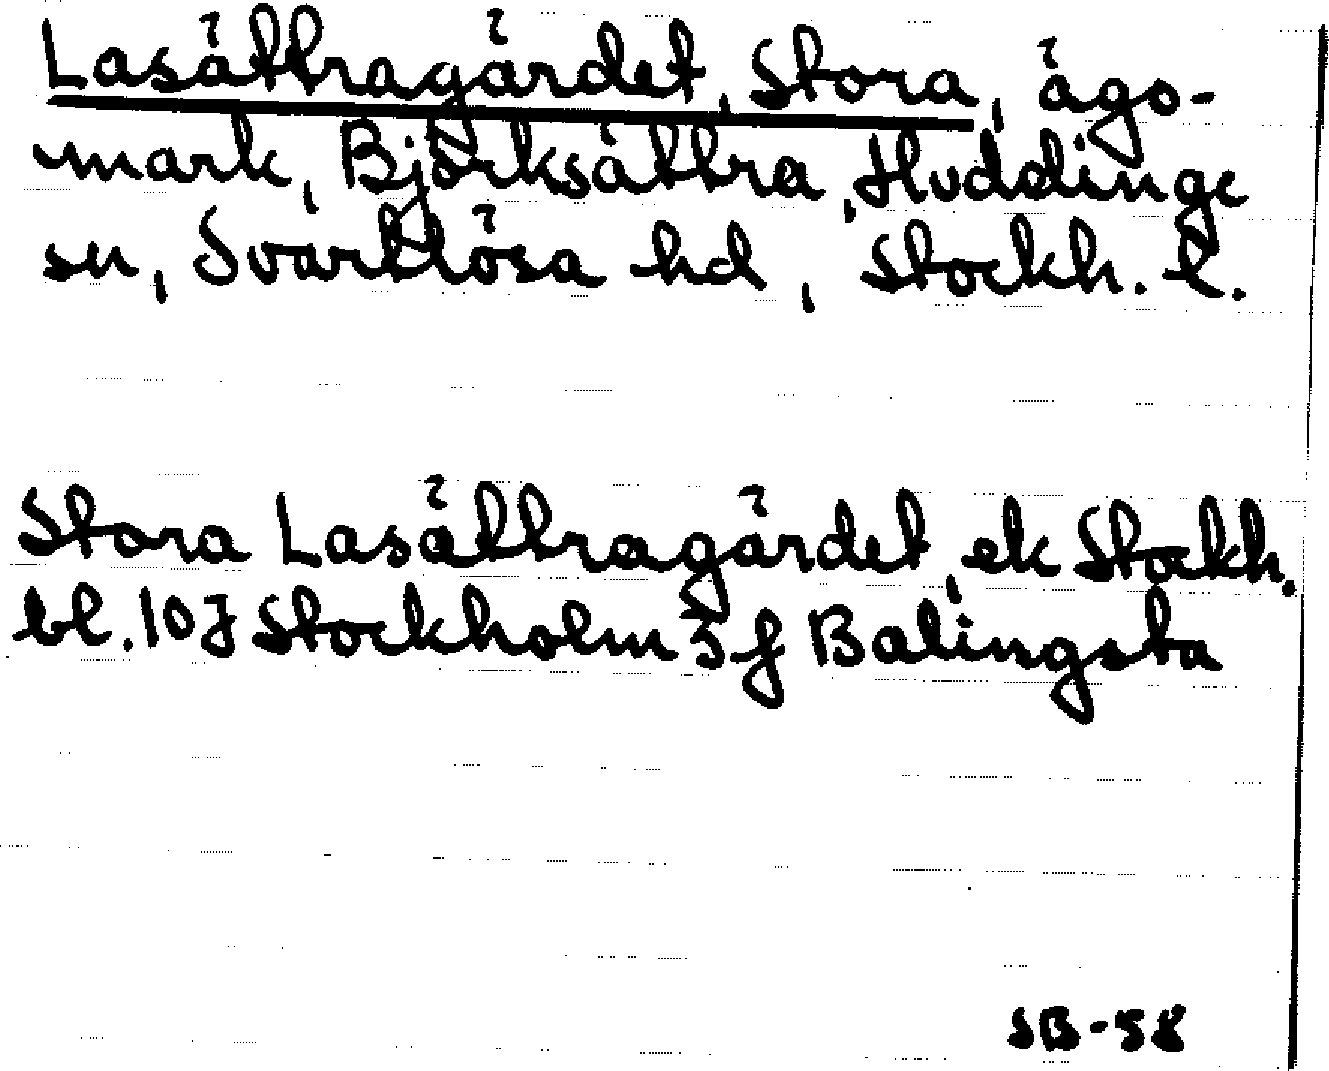 Lasättragärdet, Stora, ägo-
mark, Björksättra, Huddinge
sn, Svartlösa hd, Stockh. l.
Stora Lasättragärdet, ek Stockh.
bl. 10J Stockholm 3 f Balingsta
SB-58